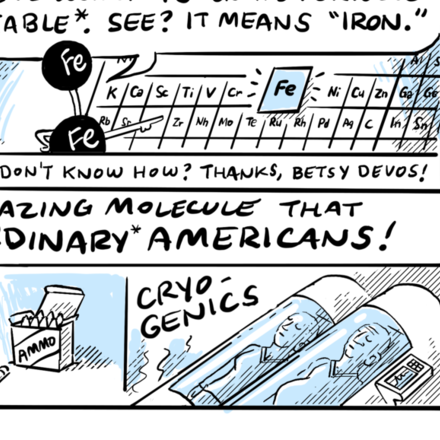 TABLE*. SEE? IT MEANS "IRON."
Fe
K Ca Sc Ti V Cr Fe Ni Cu Zn Ga Ge
Fe
Rb Sr Zr Nb Mo Te Ru Rh Pd Ag C In Sn
DON'T KNOW HOW? THANKS, BETSY DEVOS!
AZING MOLECULE THAT
DINARY* AMERICANS!
CRYO-
GENICS
AMMO